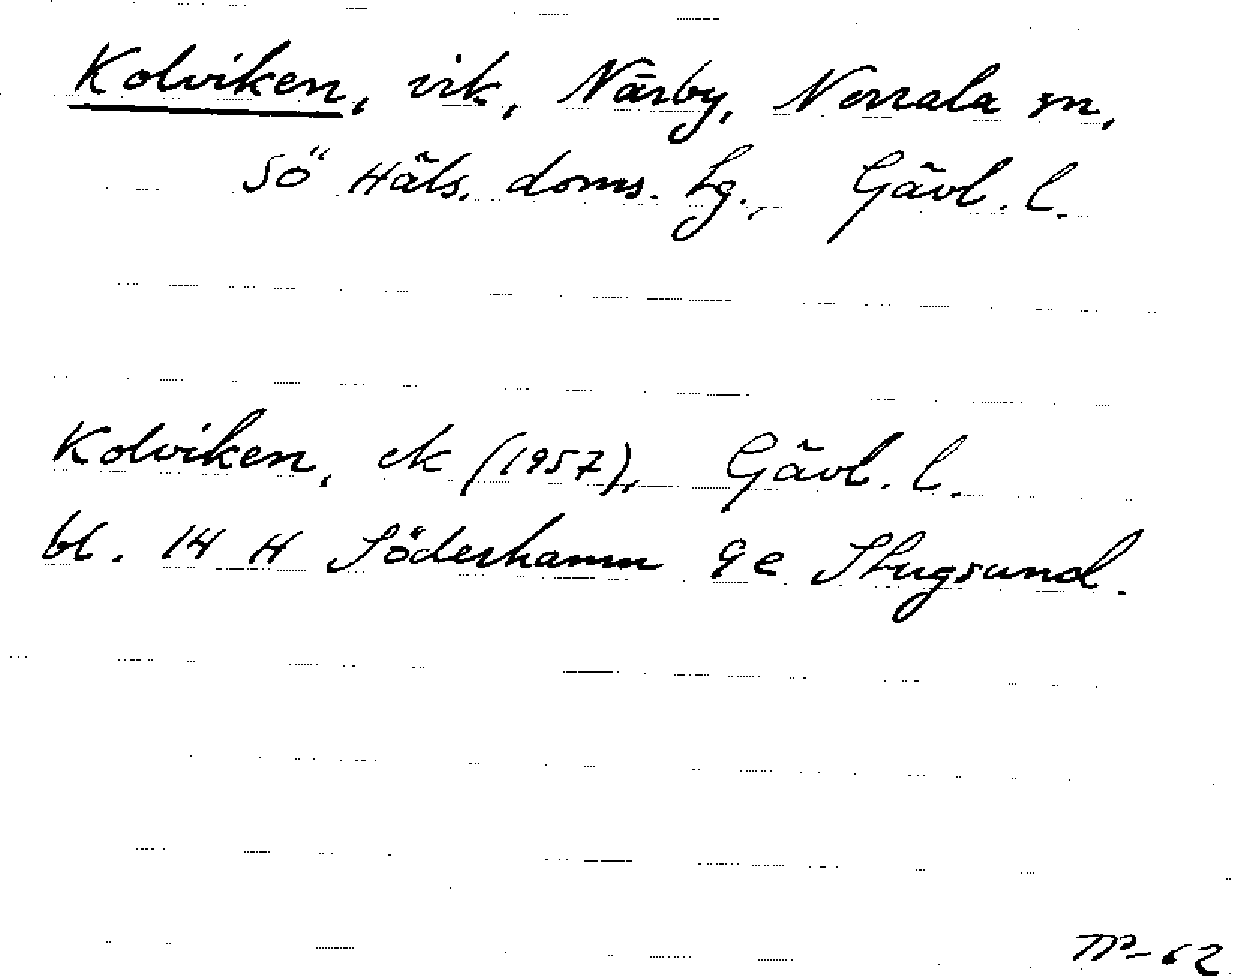 Kolviken, vik, Närby, Norrala sn,
Sö Häls. doms. lg., Gävl. l.
Kolviken, ek (1957), Gävl. l.
bl. 14 H Söderhamn 9e Stugsund.